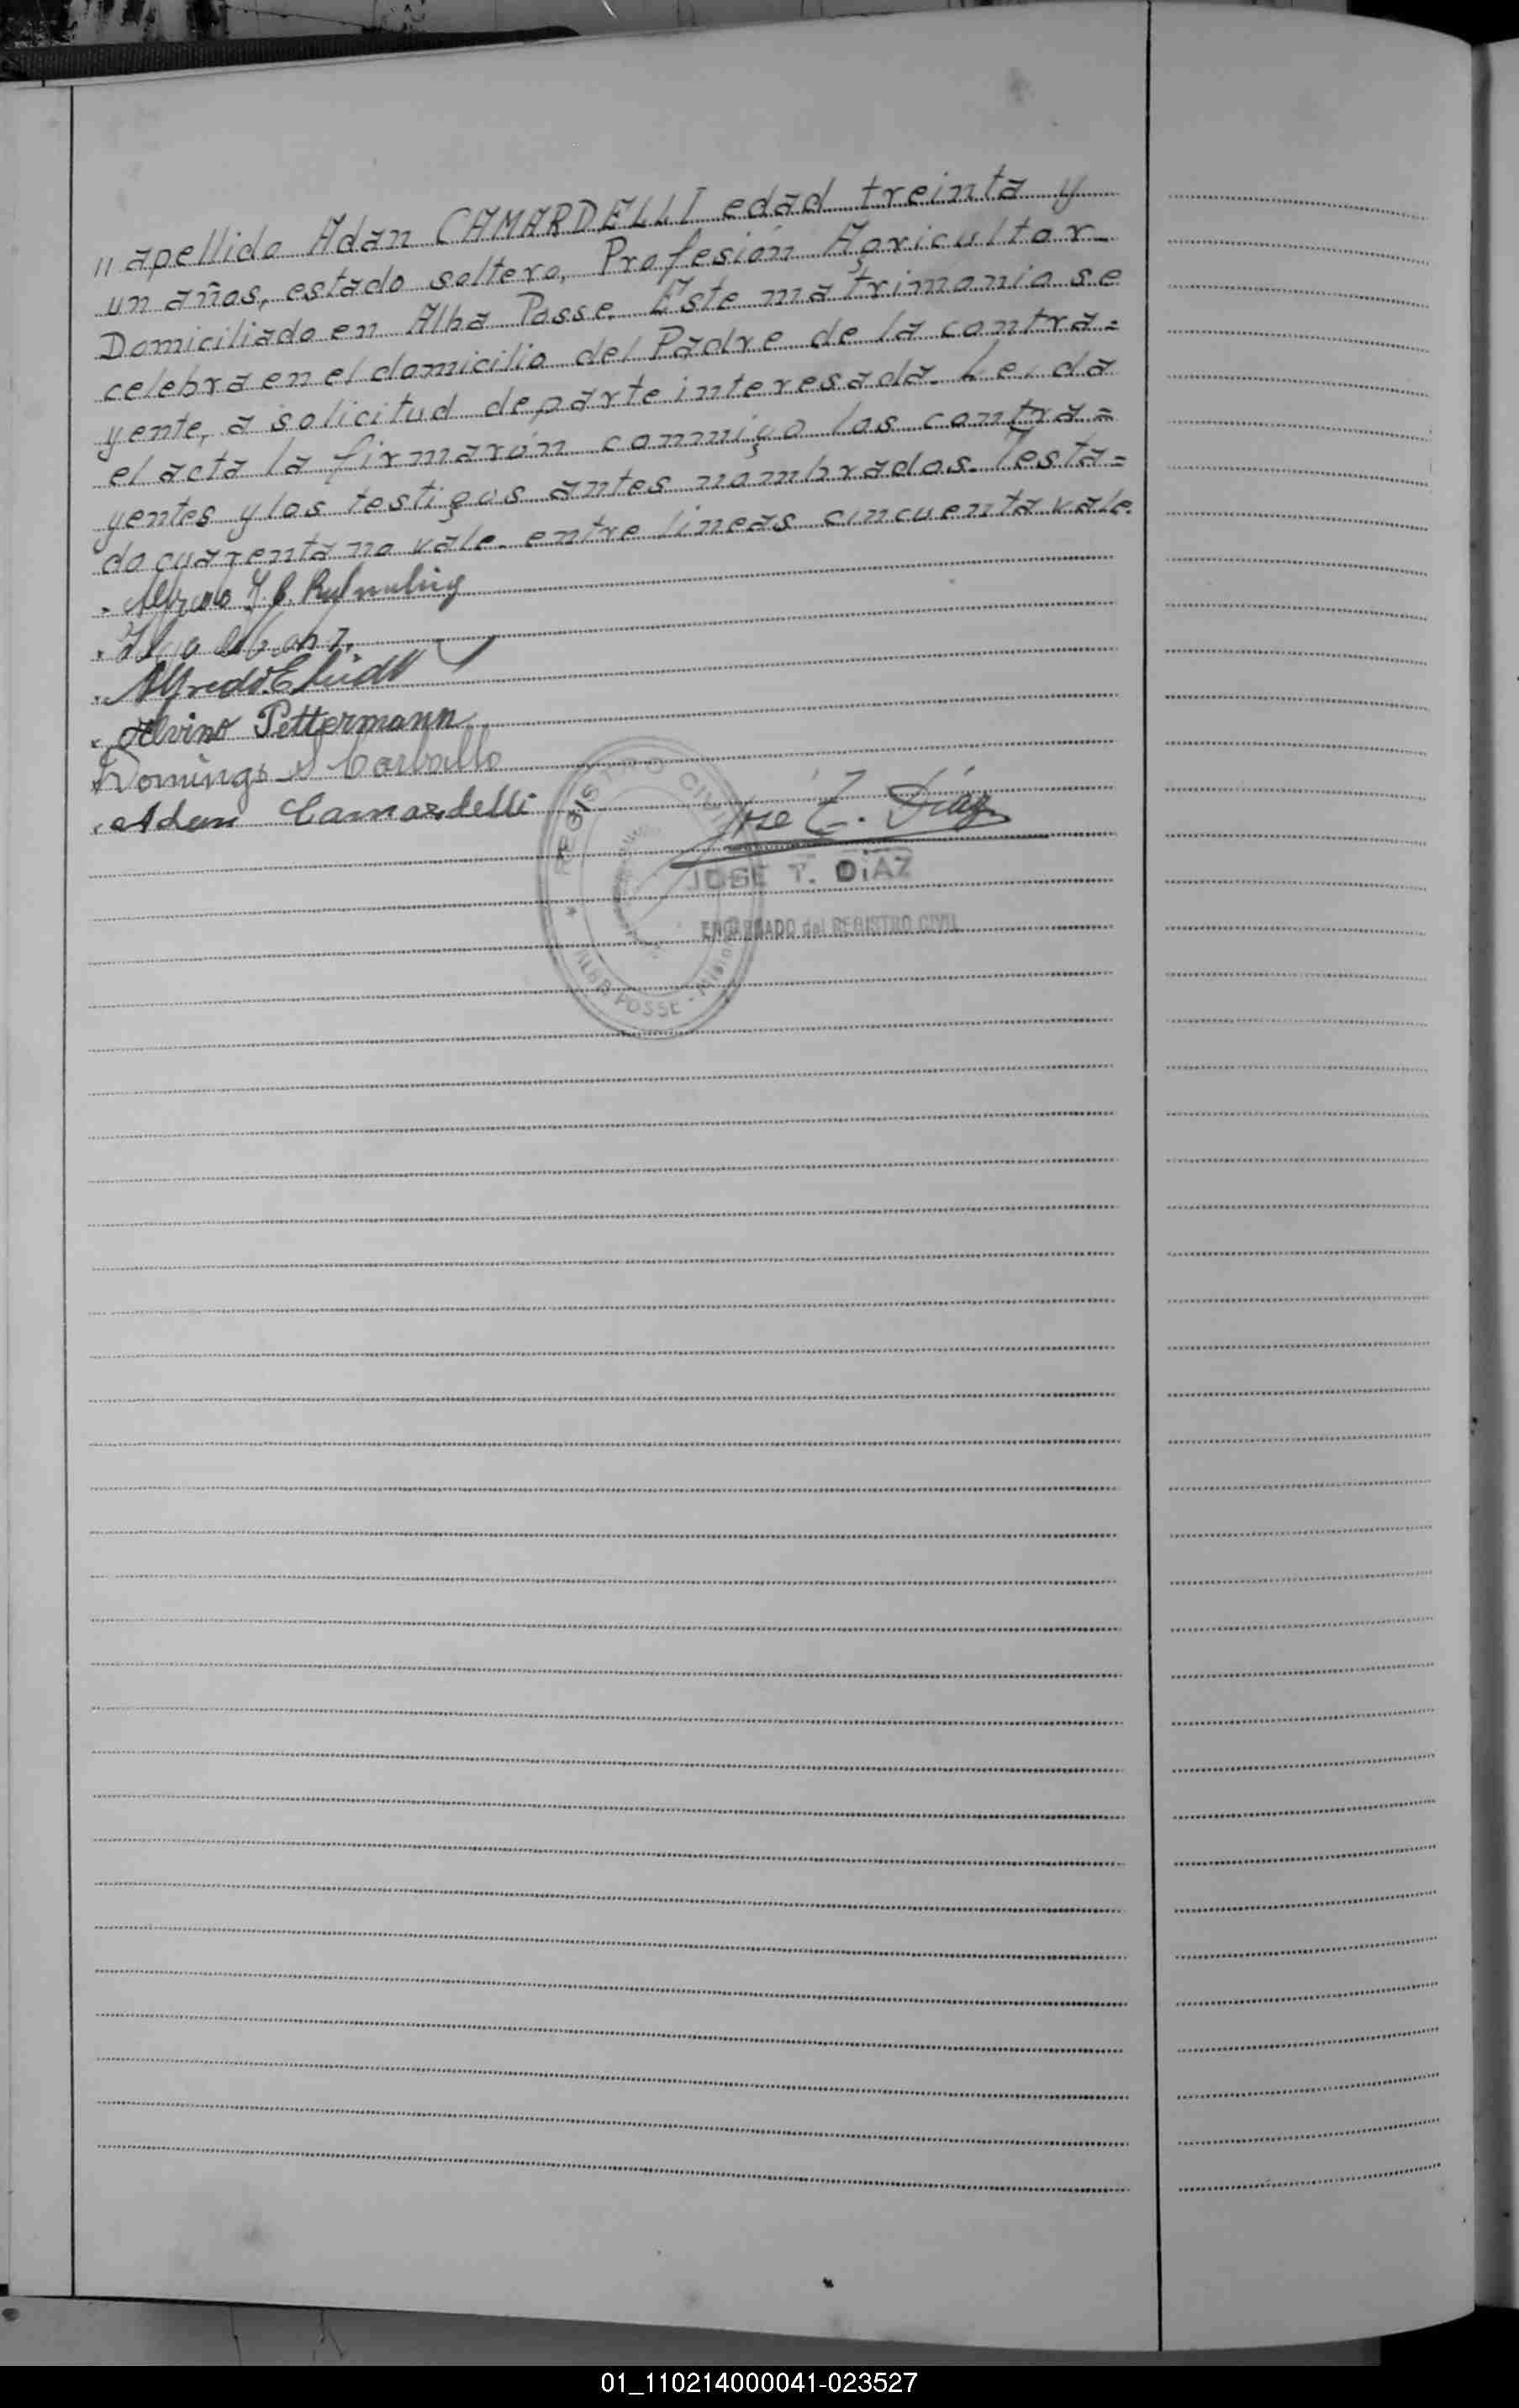 " apellido Adan CAMARDELLI edad treinta y
un años, estado soltero, Profesión Agricultor-
Domiciliado en Alba Posse. Este matrimonio se
celebra en el domicilio del Padre de la contra=
yente, a solicitud de parte interesada. Leida
el acta la firmarón conmigo los contra=
yentes y los testigos antes nombrados. Testa=
do cuarenta no vale. entre lineas cincuenta vale.
Alfredo
Alfredo E
Alvino Pettermann
Domingo S Carballo
Adan Camardelli
José T. Díaz
JOSE T. DiAZ
ENCARGADO del REGISTRO CIVIL
REGISTRO CIVIL
ALBA POSSE - Misiones
01_110214000041-023527